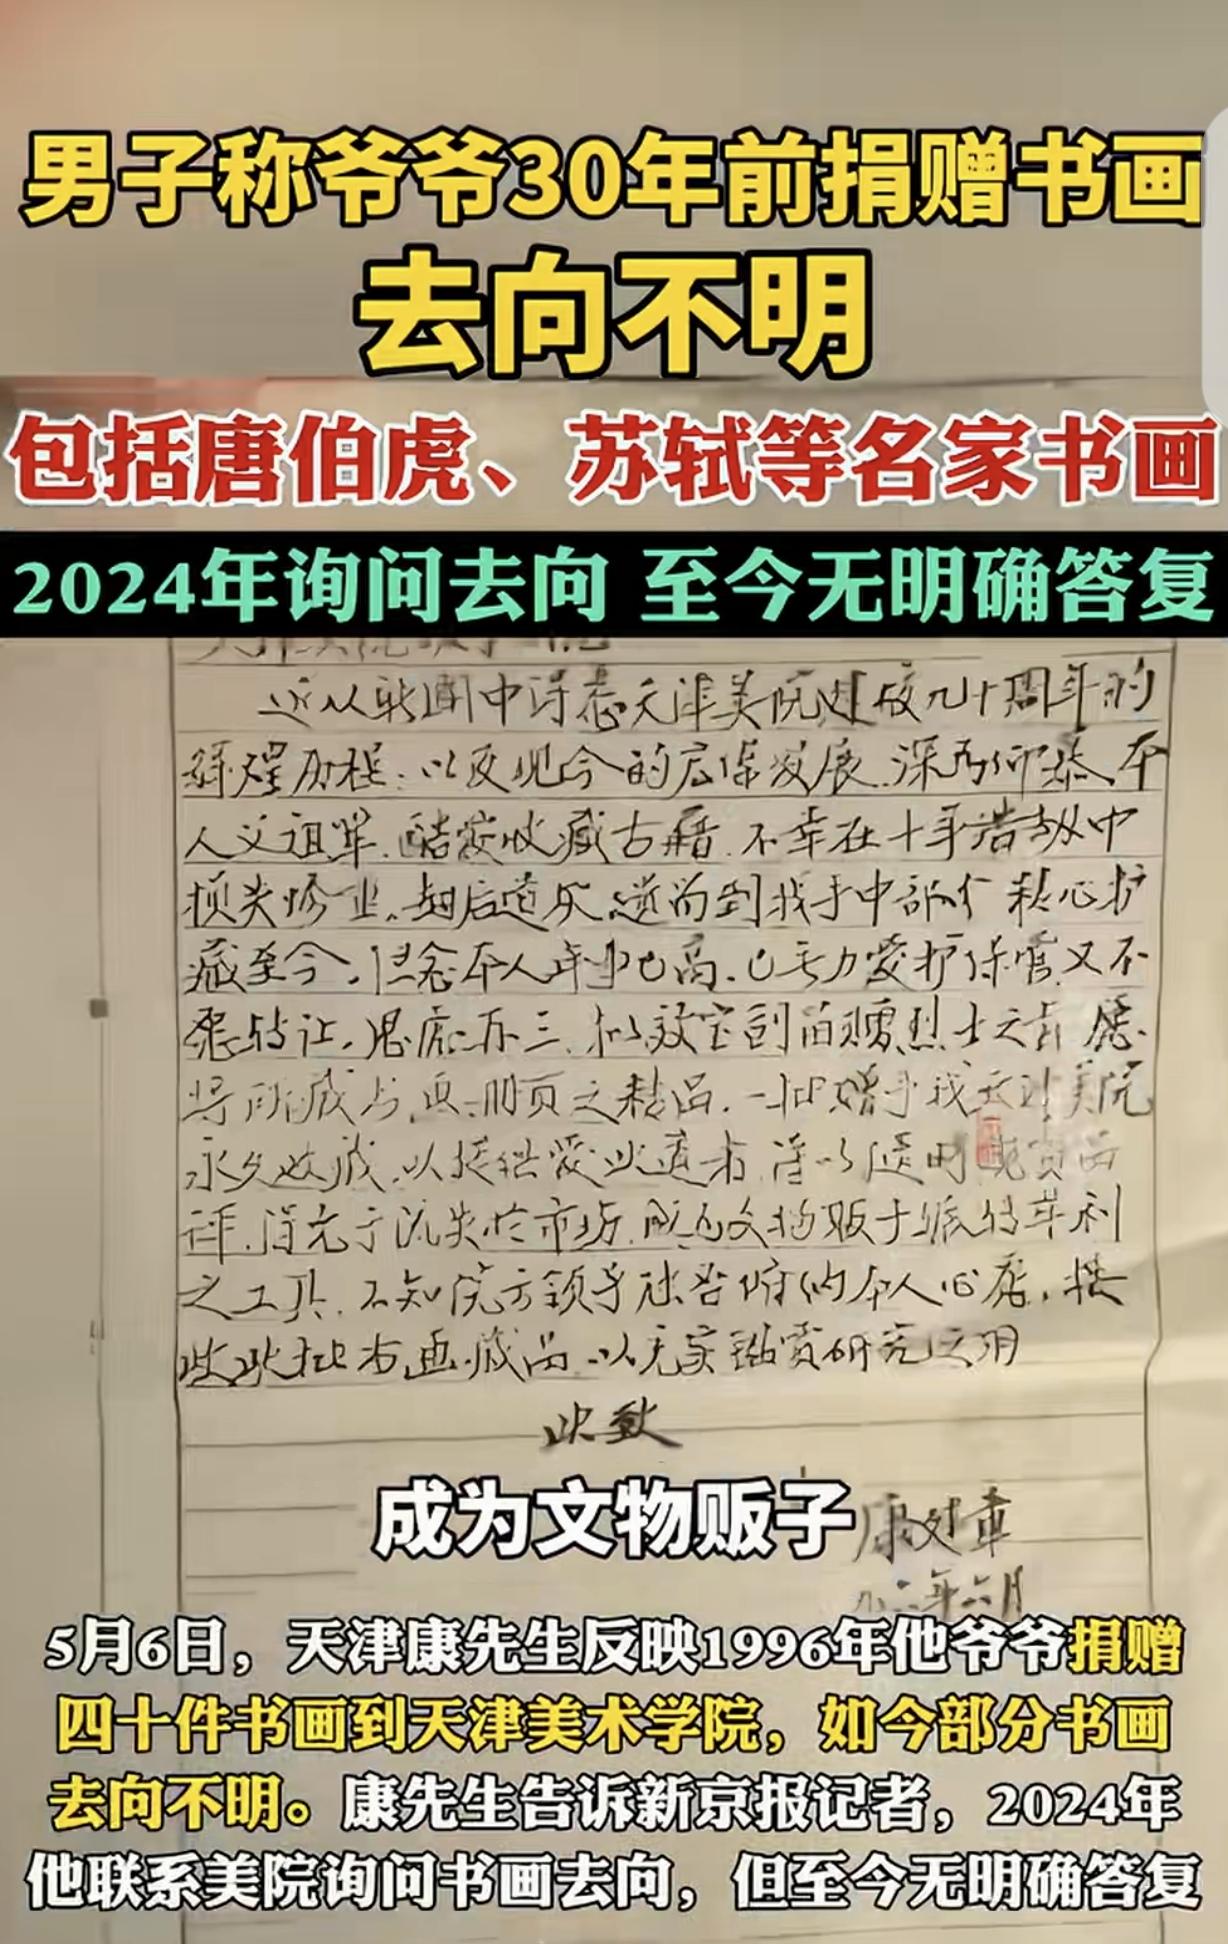 男子称爷爷30年前捐赠书画
去向不明
包括唐伯虎、苏轼等名家书画
2024年询问去向 至今无明确答复
近从新闻中得悉天津美院建校九十周年的
辉煌历程.以及现今的宏伟发展.深为仰慕.本
人父祖辈.酷爱收藏古籍.不幸在十年浩劫中
损失惨重.劫后退还 到我手中部分 精心护
藏至今.但念本人年事已高.已无力爱护保管又不
愿转让.思虑再三.
将所藏书画册页之精品.一批赠予我天津美院
永久收藏.以
评.免于流失于市场.成为文物贩子 转牟利
之工具.不知院方领导能否俯纳本人心愿.接
收此批书画藏品.以充实 研究之用
此致
成为文物贩子
康
九六年六月
5月6日，天津康先生反映1996年他爷爷捐赠
四十件书画到天津美术学院，如今部分书画
去向不明。康先生告诉新京报记者，2024年
他联系美院询问书画去向，但至今无明确答复